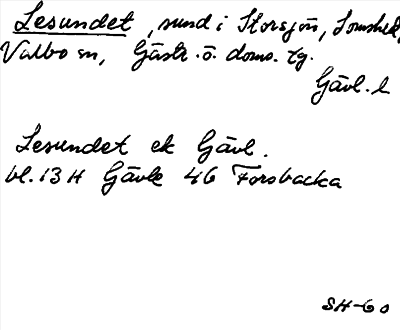 Lesundet, sund i Storsjön,
Valbo sn, Gästr. ö. doms. tg.
Gävl. l
Lesundet ek Gävl.
bl. 13 H Gävle 4G Forsbacka
SH-60